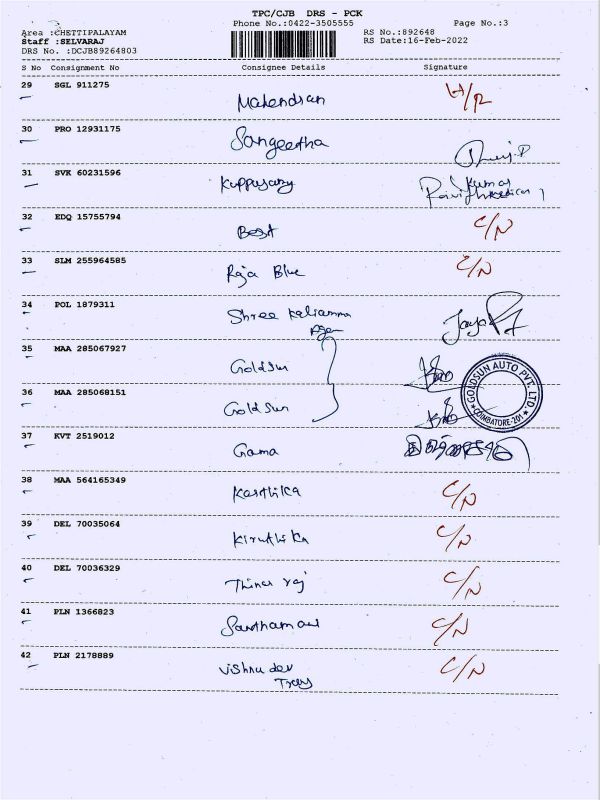 TPC/CJB DRS - PCK
Phone No.:0422-3505555 Page No.:3
Area :CHETTIPALAYAM RS No.:892648
Staff :SELVARAJ RS Date:16-Feb-2022
DRS No. :DCJB89264803
S No Consignment No Consignee Details Signature
29 SGL 911275 Mahendran H/R
30 PRO 12931175 Sangeetha
31 SVK 60231596 Kuppusamy Kumar
32 EDQ 15755794 Best C/N
33 SLM 255964585 Raja Blue C/N
34 POL 1879311 Shree Kaliamma
35 MAA 285067927 Goldsun
36 MAA 285068151 Goldsun
GOLDSUN AUTO PVT. LTD. COIMBATORE-201
37 KVT 2519012 Gama
38 MAA 564165349 Karthika C/N
39 DEL 70035064 Kiruthika C/N
40 DEL 70036329 Thinas raj C/N
41 PLN 1366823 C/N
42 PLN 2178889 Vishnu dev C/N